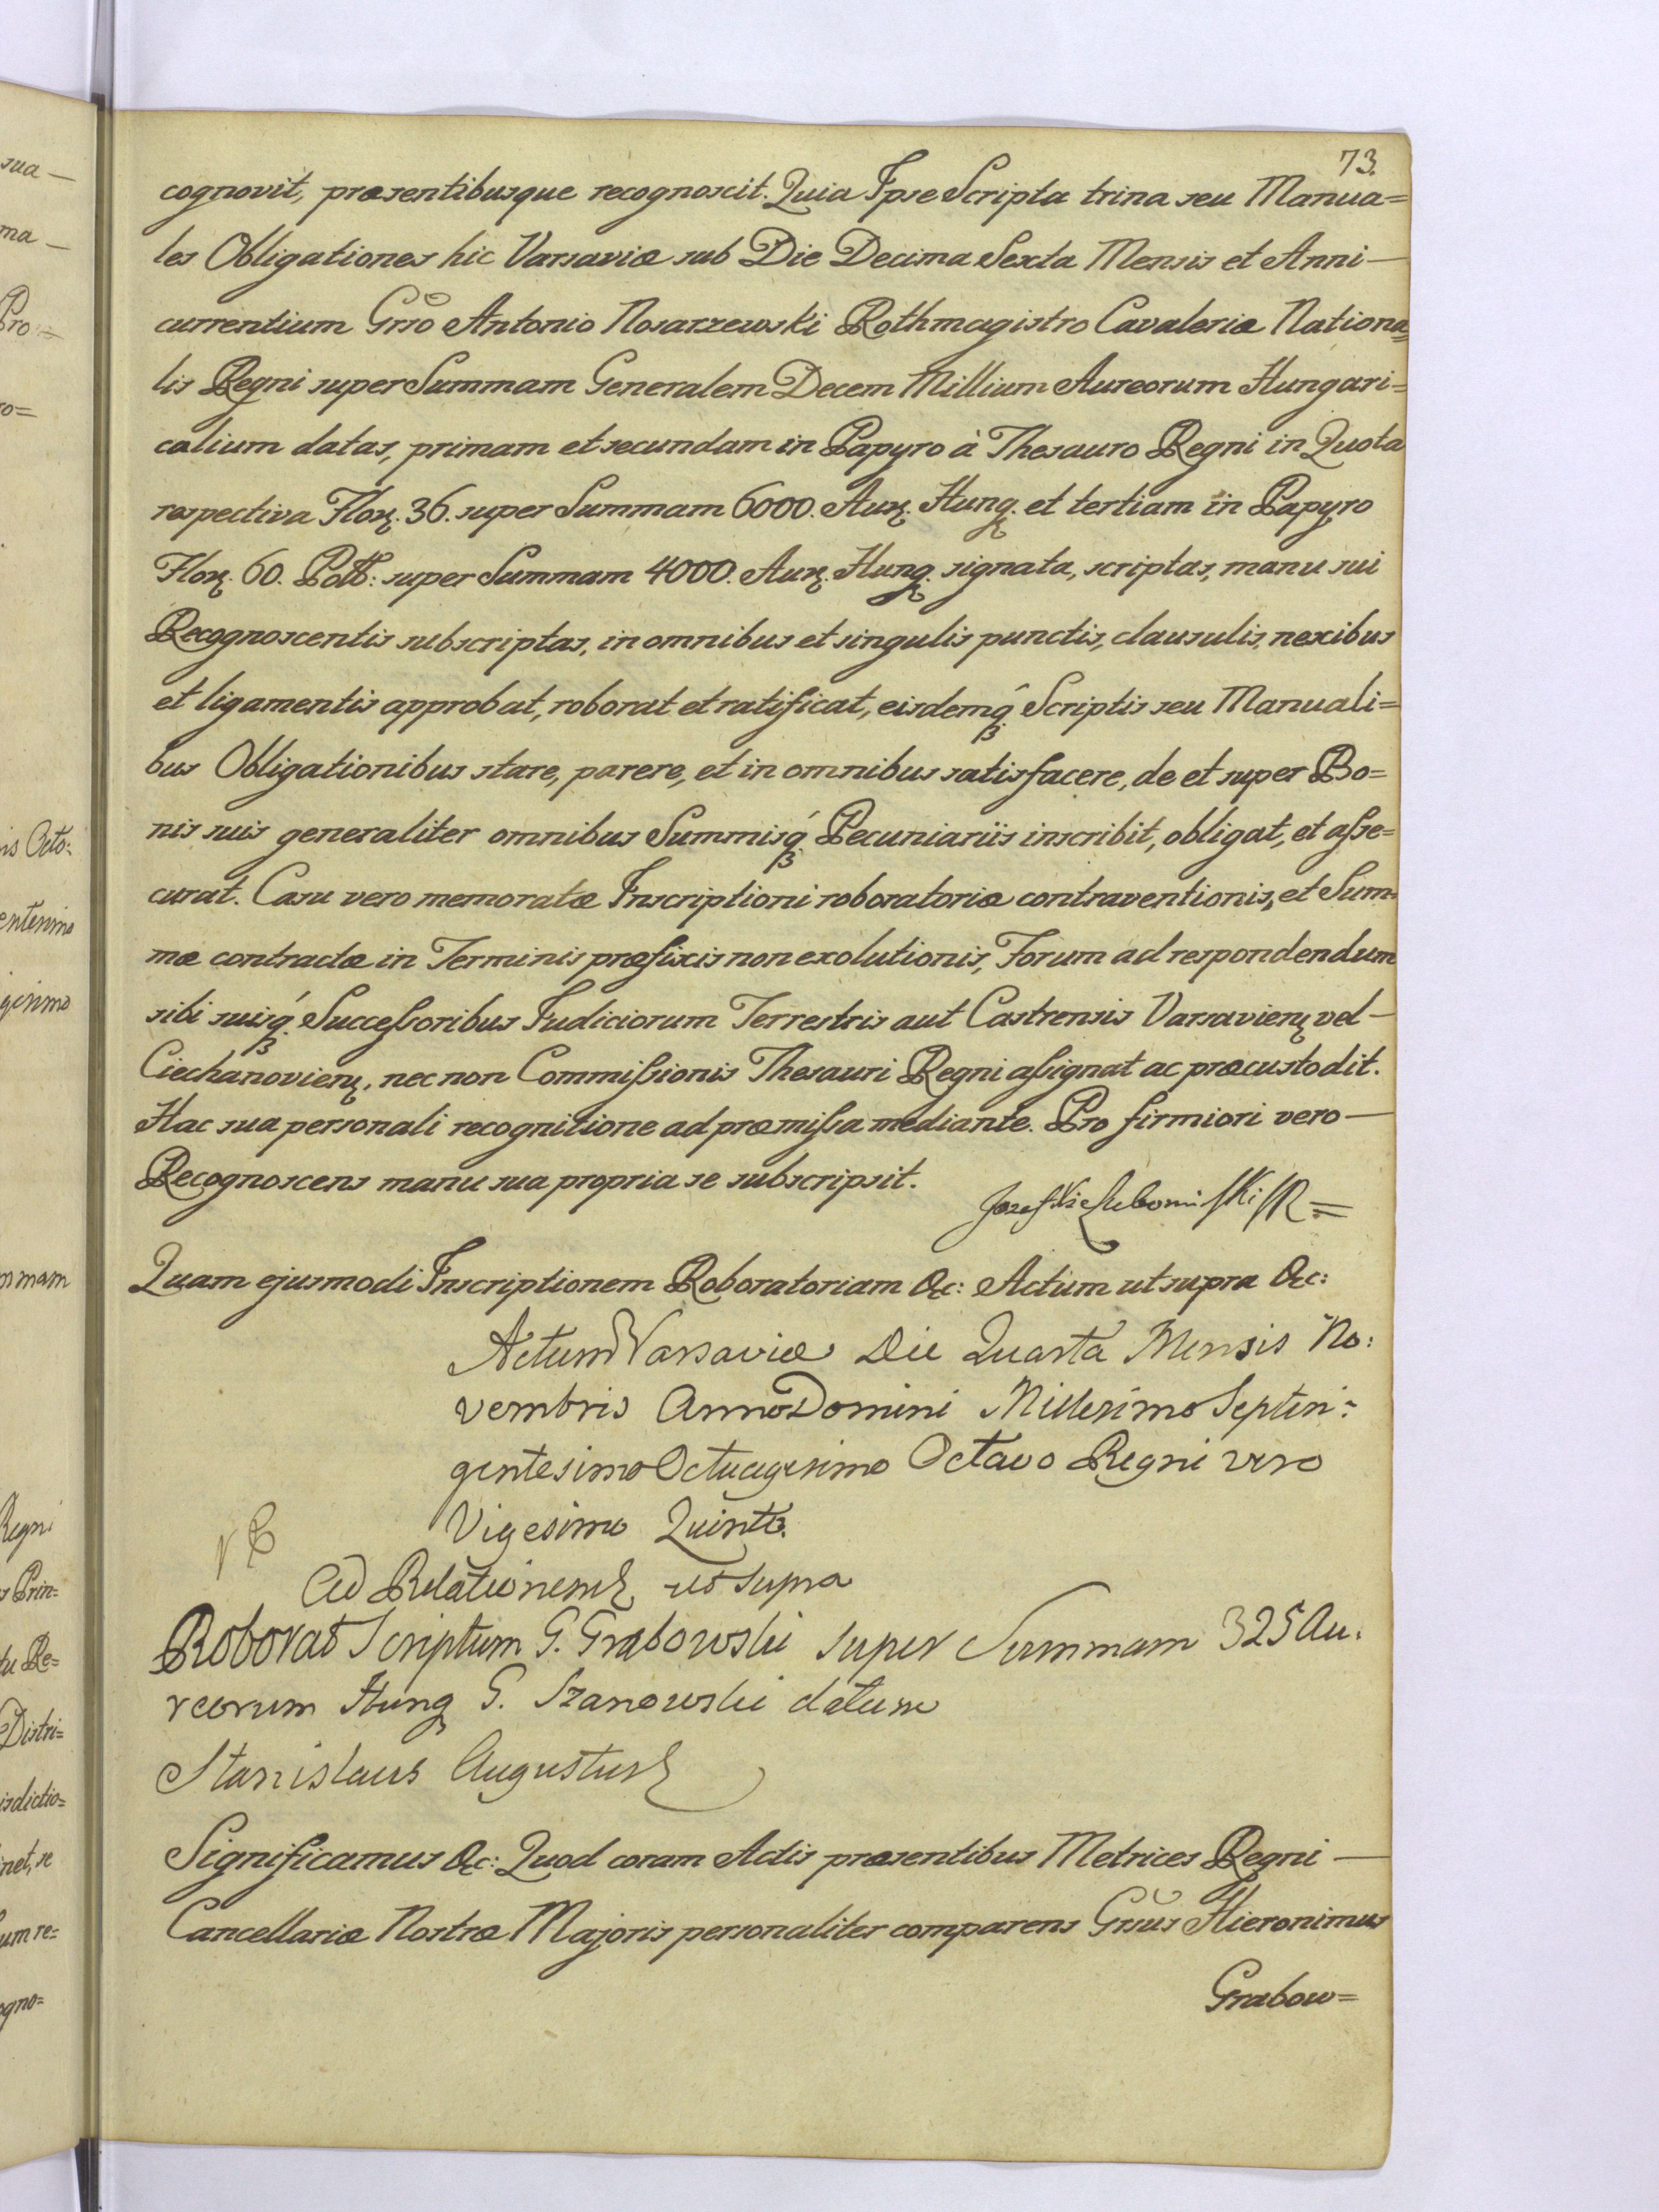 73.
cognovit, præsentibusque recognoscit. Quia Ipse Scripta trina seu Manua=
les Obligationes hic Varsaviæ sub Die Decima Sexta Mensis et Anni —
currentium Grsō Antonio Nosarzewski Rothmagistro Cavaleriæ Nationa=
lis Regni super Summam Generalem Decem Millium Aureorum Hungari=
calium datas, primam et secundam in Papyro à Thesauro Regni in Quota
respectiva Florꝝ. 36. super Summam 6000. Aurꝝ. Hung. et tertiam in Papyro
Florꝝ. 60. Poll: super Summam 4000. Aurꝝ. Hung. signata, scriptas, manu sui
Recognoscentis subscriptas, in omnibus et singulis punctis, clausulis, nexibus
et ligamentis approbat, roborat et ratificat, eisdemqꝫ Scriptis seu Manuali=
bus Obligationibus stare, parere, et in omnibus satisfacere, de et super Bo=
nis suis generaliter omnibus Summisqꝫ Pecuniariis inscribit, obligat, et asse=
curat. Casu vero memoratæ Inscriptioni roboratoriæ contraventionis, et Sum=
mæ contractæ in Terminis præfixis non exolutionis, Forum ad respondendum
sibi suisqꝫ Successoribus Judiciorum Terrestris aut Castrensis Varsavienꝝ vel —
Ciechanovienꝝ, nec non Commissionis Thesauri Regni assignat ac præcustodit.
Hac sua personali recognitione ad præmissa mediante. Pro firmiori vero —
Recognoscens manu sua propria se subscripsit.
Jozef Xże Lubomirski
Quam ejusmodi Inscriptionem Roboratoriam &c: Actum ut supra &c:
Actum Varsaviæ Die Quarta Mensis No:
vembris Anno Domini Millesimo Septin:
gentesimo Octuagesimo Octavo Regni vero
Vigesimo Quinto.
Ad Relationem ut supra
Roborat Scriptum G. Grabowski super Summam 325 Au:
reorum Hung G. Szanowski datum
Stanislaus Augustus
Significamus &c: Quod coram Actis præsentibus Metrices Regni —
Cancellariæ Nostræ Majoris personaliter comparens Grsus Hieronimus
Grabow=
sua —
ma —
Pro =
ro=
is Octo:
entesimo
gesimo
mmam
Regni
s Prin=
tu Re=
Distri=
isdictio=
net, se
um re=
ogno=